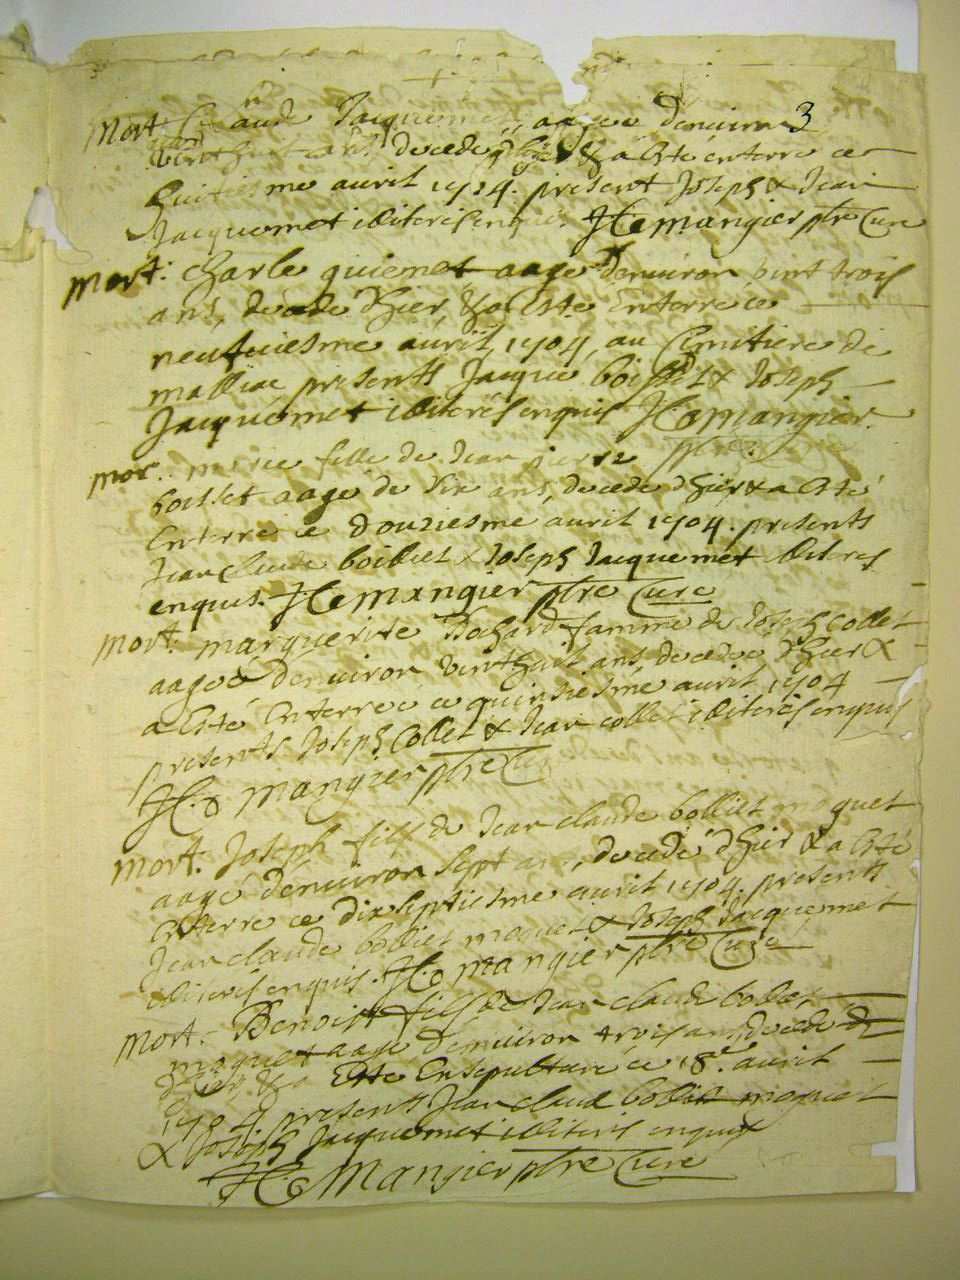 3
Mort Claude Jacquemet, aagée denuiron
vint huit ans decedé d'hier & a esté enterré ce
huitiesme auril 1704. present Joseph & Jean
Jacquemet illiterés enquis. Mangier ptre Curé
Mort. charle quiemet aagé denuiron vint trois
ans, decedé d'hier, & a esté Enterré ce
neufuiesme auril, 1704, au Cimitiere de
presents Jacque boisset & Joseph
Jacquemet illiterés enquis Mangier
ptre
mor. marie fille de Jean pierre
boisset aagé de six ans, decedé d'hier & a esté
Enterré ce douziesme auril 1704. presents
Jean claude bolliet & Joseph Jacquemet illiteres
enquis. Mangier ptre Curé
Mort. marguerite Bochard famme de Joseph Collet
aageé denuiron vint huit ans, decedeé d'hier &
a esté Enterreé ce quinsiesme auril, 1704
presents Joseph Collet & Jean collet illiterés enquis
Mangier ptre Curé
Mort. Joseph fils de Jean claude bolliet moquet
aagé denuiron sept ans, decedé d'hier & a esté
Enterre ce dix septiesme auril 1704. presents
Jean claude bolliet moquet & Joseph Jacquemet
illiterés enquis. Mangier ptre Curé
Mort. Benoist fils de Jean claude bolliet
moquet aagé denuiron trois ans, decedé
d'hier, & a Esté Ensepulturé ce 18e. auril
1704 presents Jean claude bolliet moquet
& Joseph Jacquemet illiterés enquis
Mangier ptre Curé